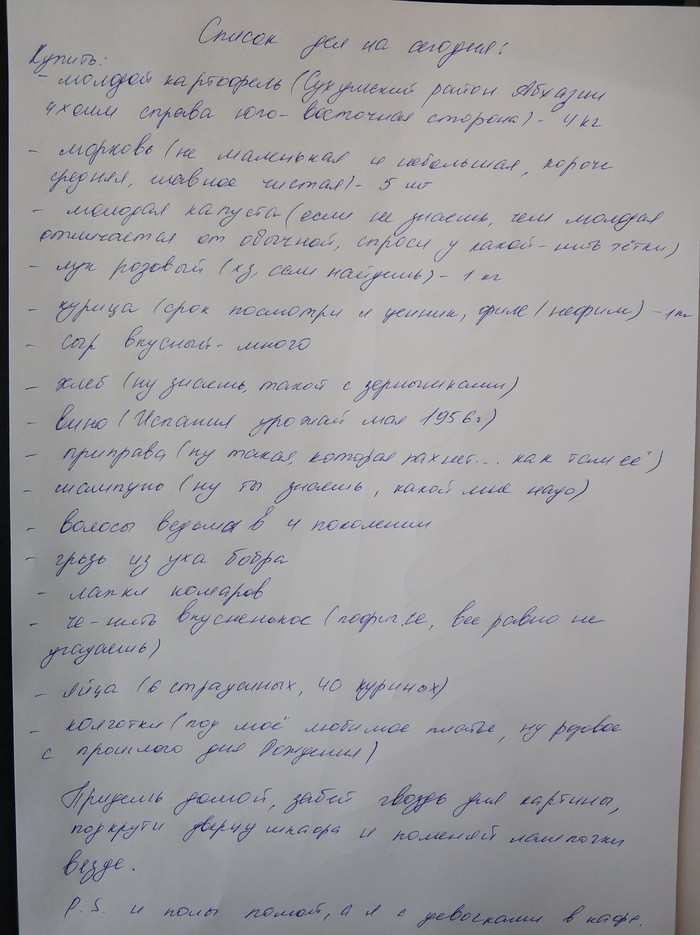 Список дел на сегодня:
Купить:
- молодой картофель (Сухумский район Абхазии
4 холм справа юго-восточная сторона) - 4 кг
- морковь (не маленькая и небольшая, короче
средняя, главное чистая) - 5 шт
- молодая капуста (если не знаешь, чем молодая
отличается от обычной, спроси у какой-нить тётки)
- лук розовый (хз, если найдешь) - 1 кг
- курица (срок посмотри и ценник, филе / нефиле) - 1 кг
- сыр вкусный - много
- хлеб (ну знаешь, такой с зернышками)
- вино (Испания урожай мая 1956 г)
- приправа (ну такая, которая пахнет... как там её)
- шампунь (ну ты знаешь, какой мне надо)
- волосы ведьмы в 4 поколении
- грязь из уха бобра
- лапки комаров
- че-нить вкусненькое (подумай, все равно не
угадаешь)
- яйца (6 страусиных, 40 куриных)
- колготки (под моё любимое платье, ну розовое
с прошлого дня Рождения)
Придешь домой, забей гвоздь для картины,
подкрути дверцу шкафа и поменяй лампочки
везде.
P.S. и полы помой, а я с девочками в кафе.